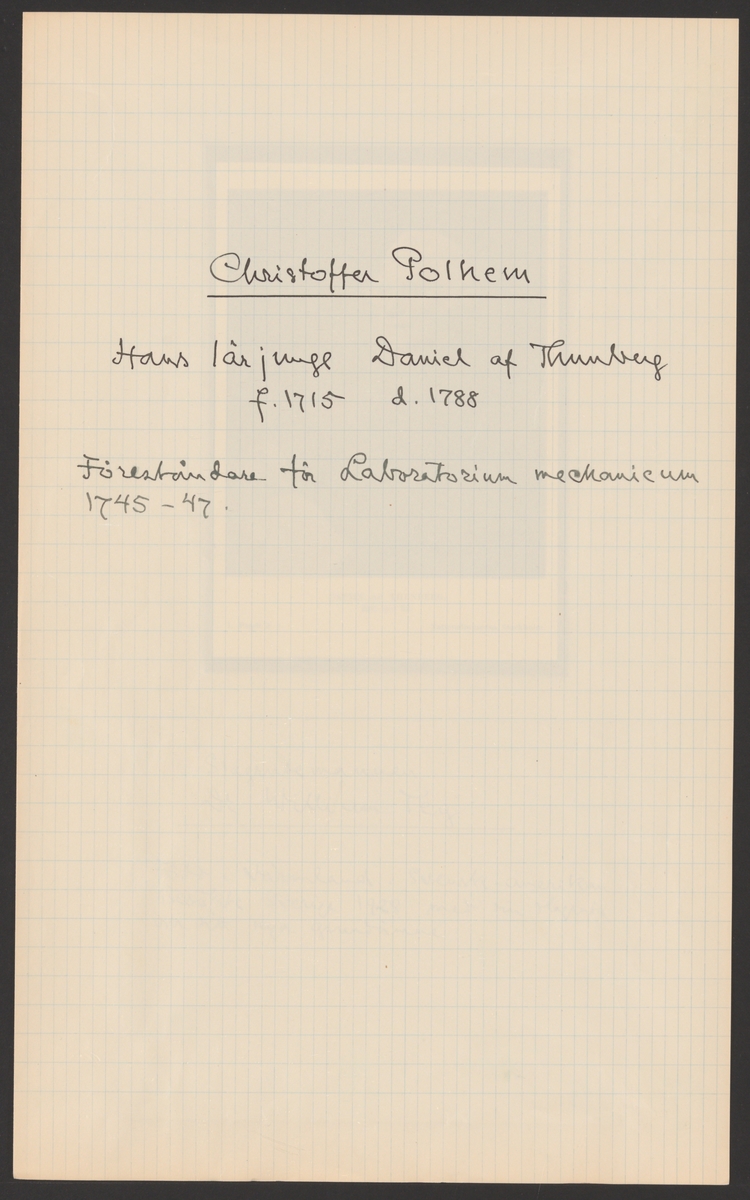 Christoffer Polhem
Hans lärjunge Daniel af Thunberg
f. 1715 d. 1788
Föreståndare för Laboratorium mechanicum
1745 - 47.